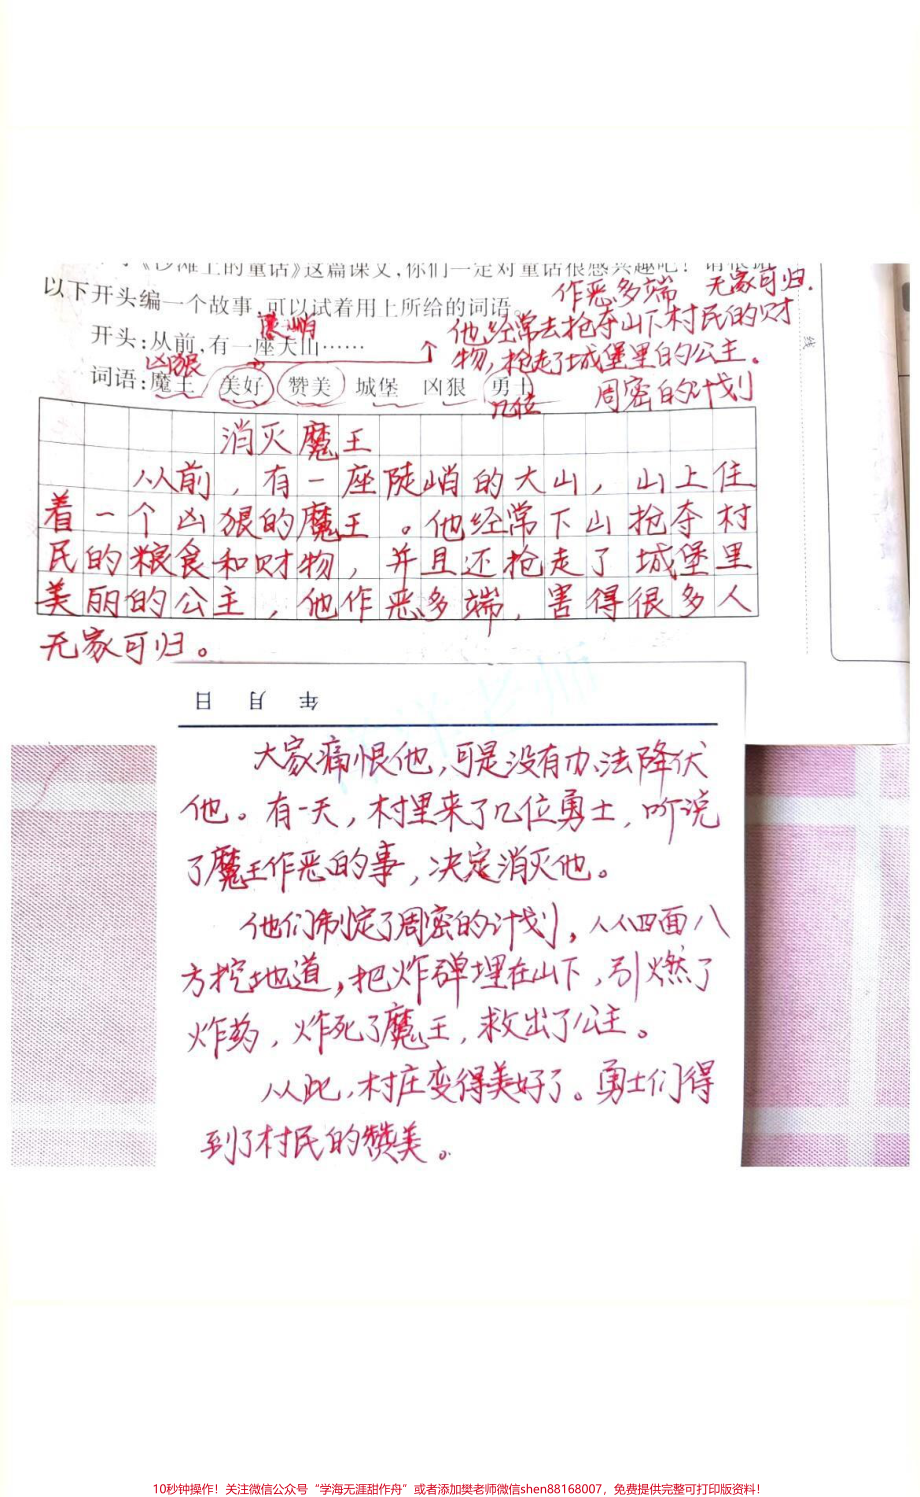 《沙滩上的童话》这篇课文,你们一定对童话很感兴趣吧!请根据
以下开头编一个故事,可以试着用上所给的词语。
作恶多端 无家可归.
陡峭
开头:从前,有一座大山……
他经常去抢夺山下村民的财
物,抢走了城堡里的公主。
凶狠
词语:魔王 美好 赞美 城堡 凶狠 勇士
几位
周密的计划
线
消灭魔王
从前,有一座陡峭的大山,山上住
着一个凶狠的魔王。他经常下山抢夺村
民的粮食和财物,并且还抢走了城堡里
美丽的公主,他作恶多端,害得很多人
无家可归。
年 月 日
大家痛恨他,可是没有办法降伏
他。有一天,村里来了几位勇士,听说
了魔王作恶的事,决定消灭他。
他们制定了周密的计划,从四面八
方挖地道,把炸弹埋在山下,引燃了
炸药,炸死了魔王,救出了公主。
从此,村庄变得美好了。勇士们得
到了村民的赞美。
10秒钟操作!关注微信公众号“学海无涯甜作舟”或者添加樊老师微信shen88168007,免费提供完整可打印版资料!